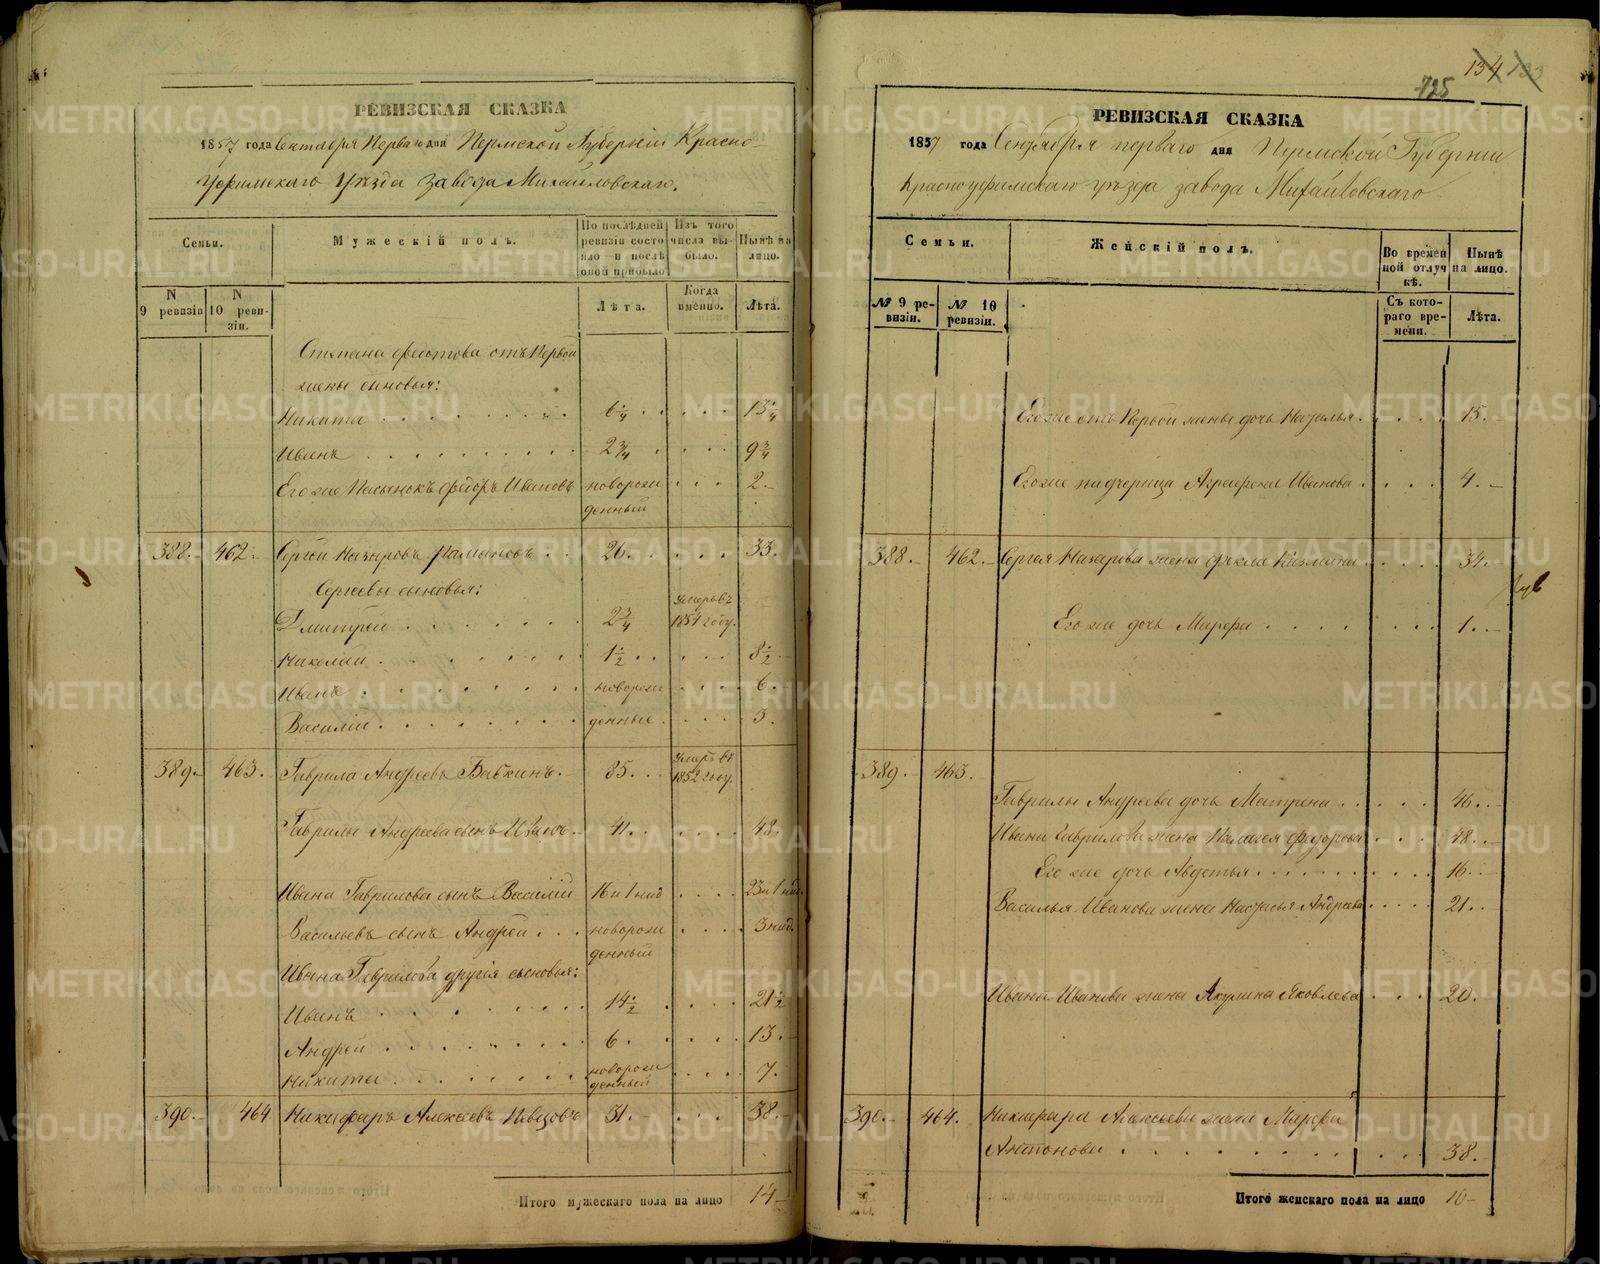 РЕВИЗСКАЯ СКАЗКА
1857 года Сентября Перваго дня Пермской Губерніи Красно-
уфимскаго Уѣзда Завода Михайловскаго.
Семьи.
Мужескій полъ.
По послѣдней ревизіи состояло и послѣ оной прибыло
Изъ того числа выбыло.
Нынѣ на лицо.
N 9 ревизіи
N 10 ревизіи.
Лѣта.
Когда именно.
Лѣта.
Степана Федотова отъ Первой
жены сыновья:
Никита 6 1/4 13 1/4
Иванъ 2 3/4 9 3/4
Его же Пасынокъ Федоръ Ивановъ новорожденный 2.
388. 462. Сергей Назаровъ 26. 33.
Сергѣевы сыновья:
Дмитрей 2 3/4 умеръ въ 1854 году.
Николай 1 1/2 8 1/2
Иванъ новорож 6.
Василій денные 3.
389. 463. Гаврила Андреевъ Бабкинъ. 85. умеръ въ 1852 году.
Гаврилы Андреева сынъ Иванъ 41. 48.
Ивана Гаврилова сынъ Василій 16 и 1 нид 23 и 1 нид.
Васильевъ сынъ Андрей новорожденный 3 нид.
Ивана Гаврилова другія сыновья:
Иванъ 14 1/2 21 1/2
Андрей 6. 13.
Никита новорожденный 7.
390. 464 Никифоръ Алексеевъ Певцовъ 31. 38.
Итого мужескаго пола на лицо 14
134
125
РЕВИЗСКАЯ СКАЗКА
1857 года Сентября перваго дня Пермской Губерніи
Красноуфимскаго уѣзда завода Михайловскаго
Семьи.
Женскій полъ.
Во временной отлучкѣ.
Нынѣ на лицо.
№ 9 ревизіи.
№ 10 ревизіи.
Съ котораго времени.
Лѣта.
Его же отъ Первой жены дочь Наталья 15.
Его же падчерица Аграфена Иванова 4.
388. 462. Сергея Назарова жена Фекла Козмина 34.
Его же дочь Марфа 1.
389. 463.
Гаврилы Андреева дочь Матрена 46.
Ивана Гаврилова жена Палагея Федорова 48.
Его же дочь Авдотья 16.
Василья Иванова жена Настасья Андреева 21.
Ивана Иванова жена Акулина Яковлева 20.
390. 464. Никифора Алексеева жена Марфа
Антонова 38.
Итого женскаго пола на лицо 10
METRIKI.GASO-URAL.RU